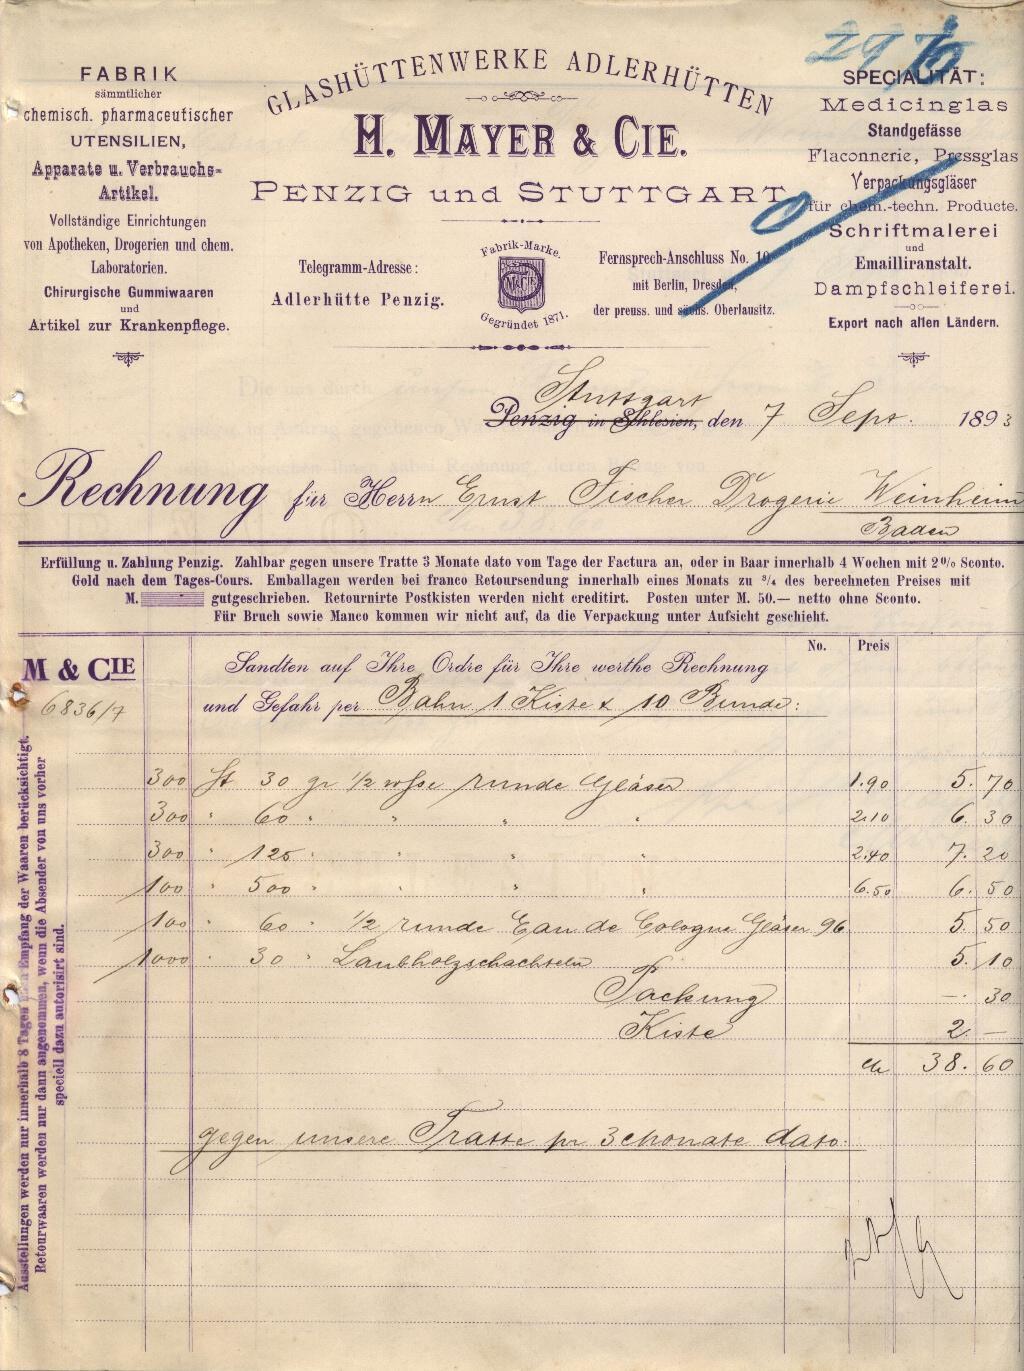 FABRIK
sämmtlicher
chemisch. pharmaceutischer
UTENSILIEN,
Apparate u. Verbrauchs-
Artikel.
Vollständige Einrichtungen
von Apotheken, Drogerien und chem.
Laboratorien.
Chirurgische Gummiwaaren
und
Artikel zur Krankenpflege.
GLASHÜTTENWERKE ADLERHÜTTEN
H. MAYER & CIE.
PENZIG und STUTTGART
Telegramm-Adresse:
Adlerhütte Penzig.
Fabrik-Marke.
M&CIE
Gegründet 1871.
Fernsprech-Anschluss No. 10
mit Berlin, Dresden,
der preuss. und sächs. Oberlausitz.
SPECIALITÄT:
Medicinglas
Standgefässe
Flaconnerie, Pressglas
Verpackungsgläser
für chem.-techn. Producte.
Schriftmalerei
und
Emailliranstalt.
Dampfschleiferei.
Export nach allen Ländern.
Stuttgart
Penzig in Schlesien, den 7 Sept. 1893
Rechnung für Herrn Ernst Fischer Drogerie Weinheim
Baden
Erfüllung u. Zahlung Penzig. Zahlbar gegen unsere Tratte 3 Monate dato vom Tage der Factura an, oder in Baar innerhalb 4 Wochen mit 2% Sconto.
Gold nach dem Tages-Cours. Emballagen werden bei franco Retoursendung innerhalb eines Monats zu 3/4 des berechneten Preises mit
M. gutgeschrieben. Retournirte Postkisten werden nicht creditirt. Posten unter M. 50.— netto ohne Sconto.
Für Bruch sowie Manco kommen wir nicht auf, da die Verpackung unter Aufsicht geschieht.
No. Preis
M & CIE
6836/7
Sandten auf Ihre Ordre für Ihre werthe Rechnung
und Gefahr per Bahn 1 Kiste & 10 Bunde:
300 St 30 gr 1/2 wsse runde Gläser 1.90 5.70
300 " 60 " " " " 2.10 6.30
300 " 125 " " " " 2.40 7.20
100 " 500 " " " " 6.50 6.50
100 " 60 " 1/2 runde Eau de Cologne Gläser 96 5.50
1000 " 30 " Laubholzschachteln 5.10
Packung —.30
Kiste 2.—
M 38.60
gegen unsere Tratte pr 3 Monate dato.
Ausstellungen werden nur innerhalb 8 Tagen nach Empfang der Waaren berücksichtigt.
Retourwaaren werden nur dann angenommen, wenn die Absender von uns vorher
speciell dazu autorisirt sind.